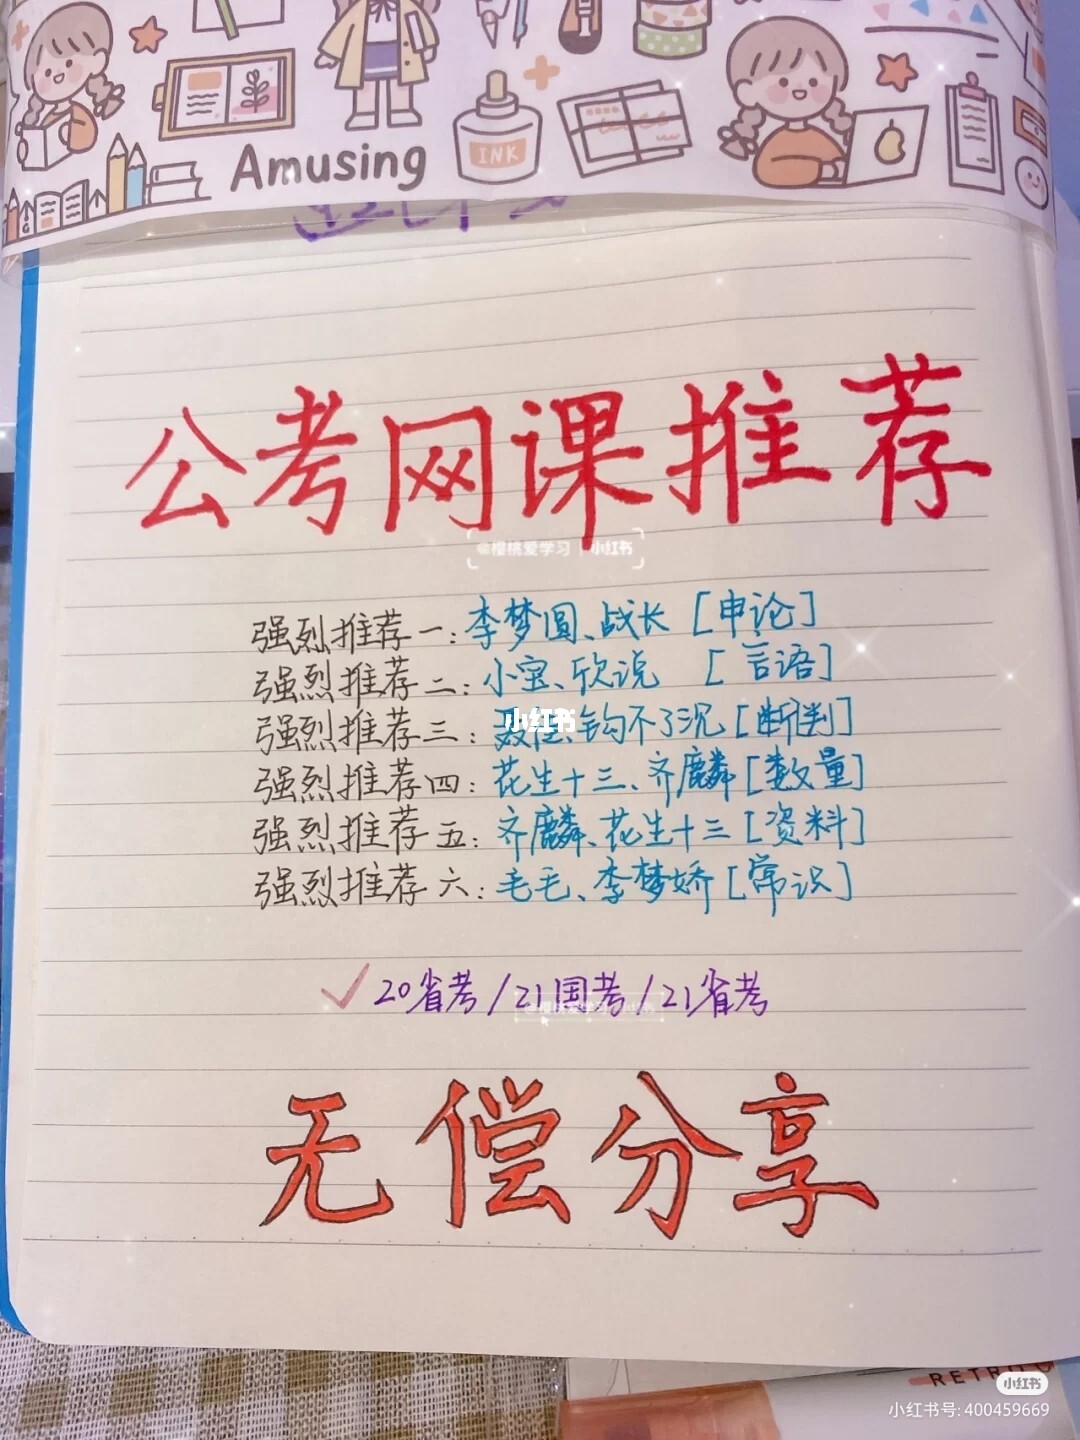 Amusing
INK
公考网课推荐
@樱桃爱学习 | 小红书
强烈推荐一:李梦圆、战长［申论］
强烈推荐二:小宝、欣说［言语］
小红书
强烈推荐三:聂佳、钩不了沉［断判］
强烈推荐四:花生十三、齐麟［数量］
强烈推荐五:齐麟、花生十三［资料］
强烈推荐六:毛毛、李梦娇［常识］
20省考/21国考/21省考
无偿分享
RETRO
小红书
小红书号:400459669